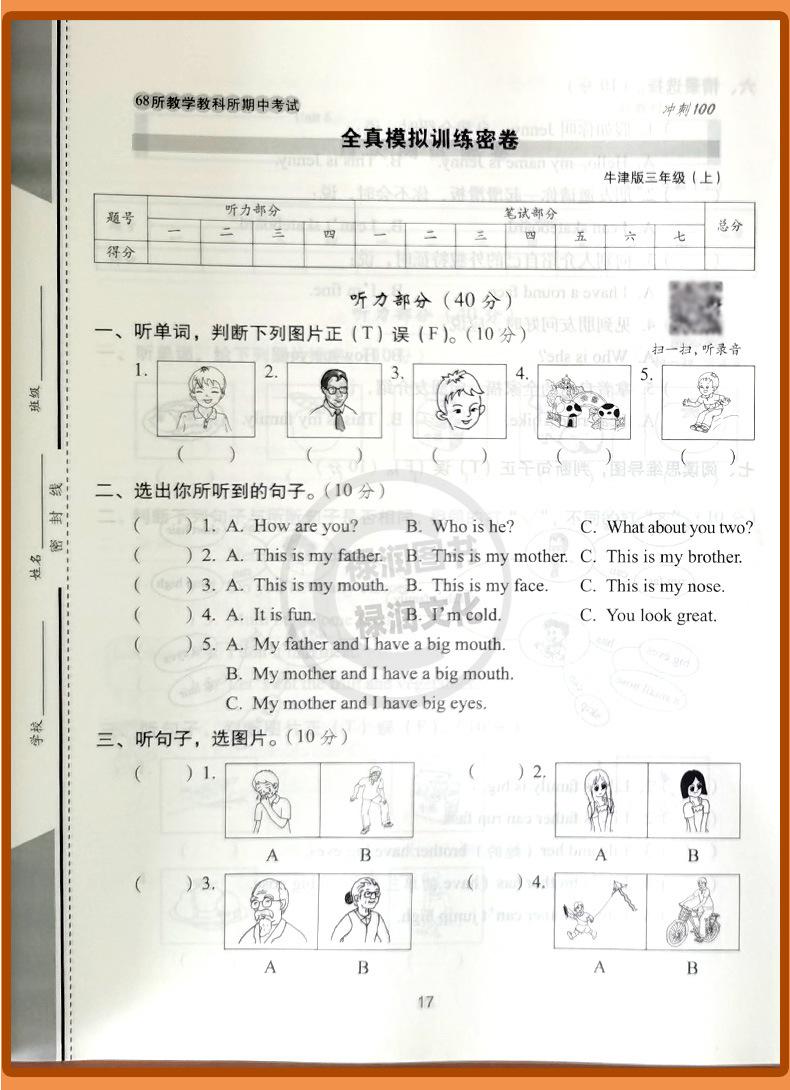 68所教学教科所期中考试
冲刺100
全真模拟训练密卷
牛津版三年级（上）
题号 听力部分 笔试部分 总分
一 二 三 四 一 二 三 四 五 六 七
得分
听力部分（40分）
一、听单词，判断下列图片正（T）误（F）。（10分）
扫一扫，听录音
1. 2. 3. 4. 5.
( ) ( ) ( ) ( ) ( )
二、选出你所听到的句子。（10分）
( ) 1. A. How are you? B. Who is he? C. What about you two?
( ) 2. A. This is my father. B. This is my mother. C. This is my brother.
( ) 3. A. This is my mouth. B. This is my face. C. This is my nose.
( ) 4. A. It is fun. B. I'm cold. C. You look great.
( ) 5. A. My father and I have a big mouth.
B. My mother and I have a big mouth.
C. My mother and I have big eyes.
三、听句子，选图片。（10分）
( ) 1. ( ) 2.
A B A B
( ) 3. ( ) 4.
A B A B
17
班级
姓名
学校
密封线
禄润图书
禄润文化